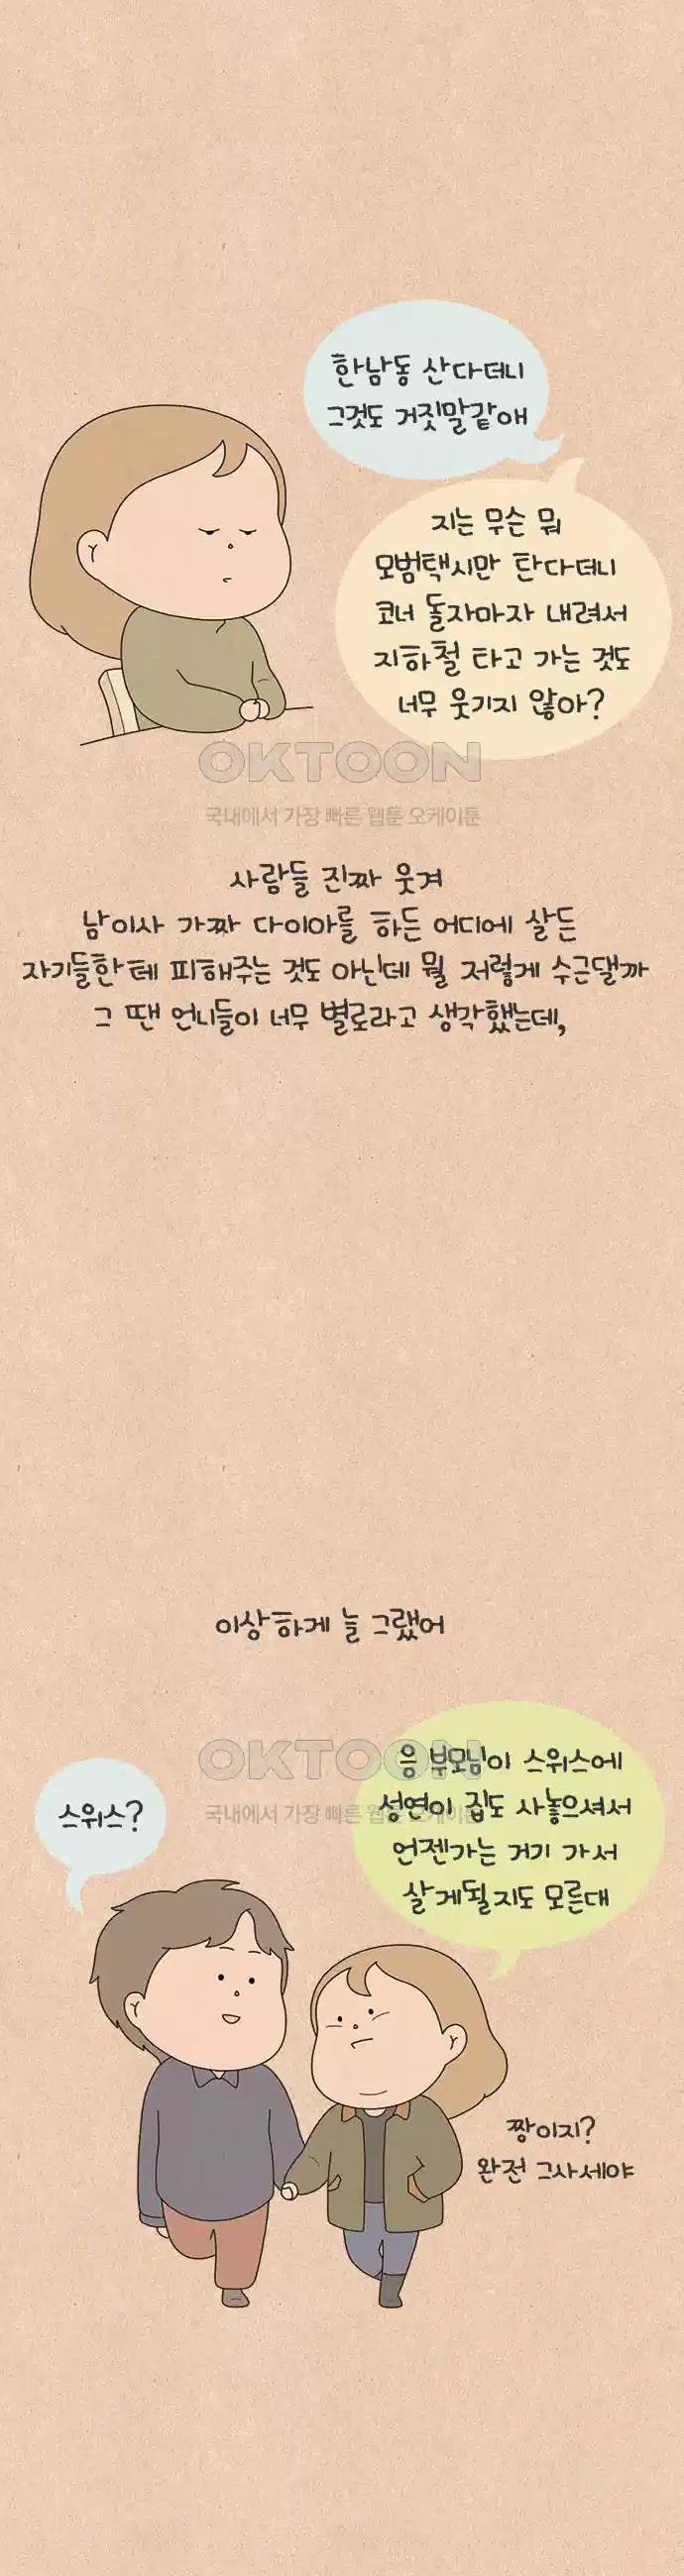 한남동 산다더니
그것도 거짓말같애
지는 무슨 뭐
모범택시만 탄다더니
코너 돌자마자 내려서
지하철 타고 가는 것도
너무 웃기지 않아?
OKTOON
국내에서 가장 빠른 웹툰 오케이툰
사람들 진짜 웃겨
남이사 가짜 다이아를 하든 어디에 살든
자기들한테 피해주는 것도 아닌데 뭘 저렇게 수근댈까
그 땐 언니들이 너무 별로라고 생각했는데,
이상하게 늘 그랬어
OKTOON
국내에서 가장 빠른 웹툰 오케이툰
스위스?
응 부모님이 스위스에
성연이 집도 사놓으셔서
언젠가는 거기 가서
살게될지도 모른대
짱이지?
완전 그사세야